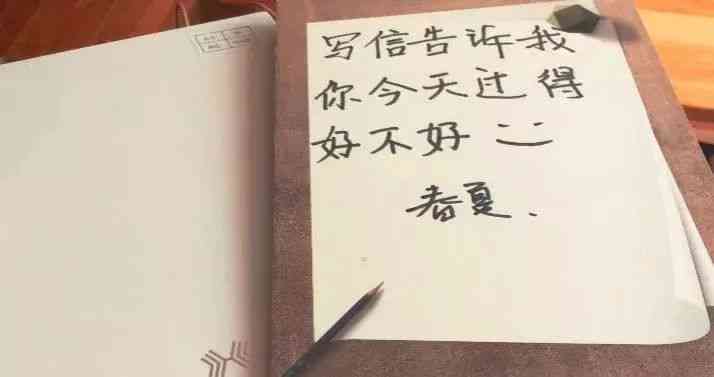 写信告诉我
你今天过得
好不好
春夏.